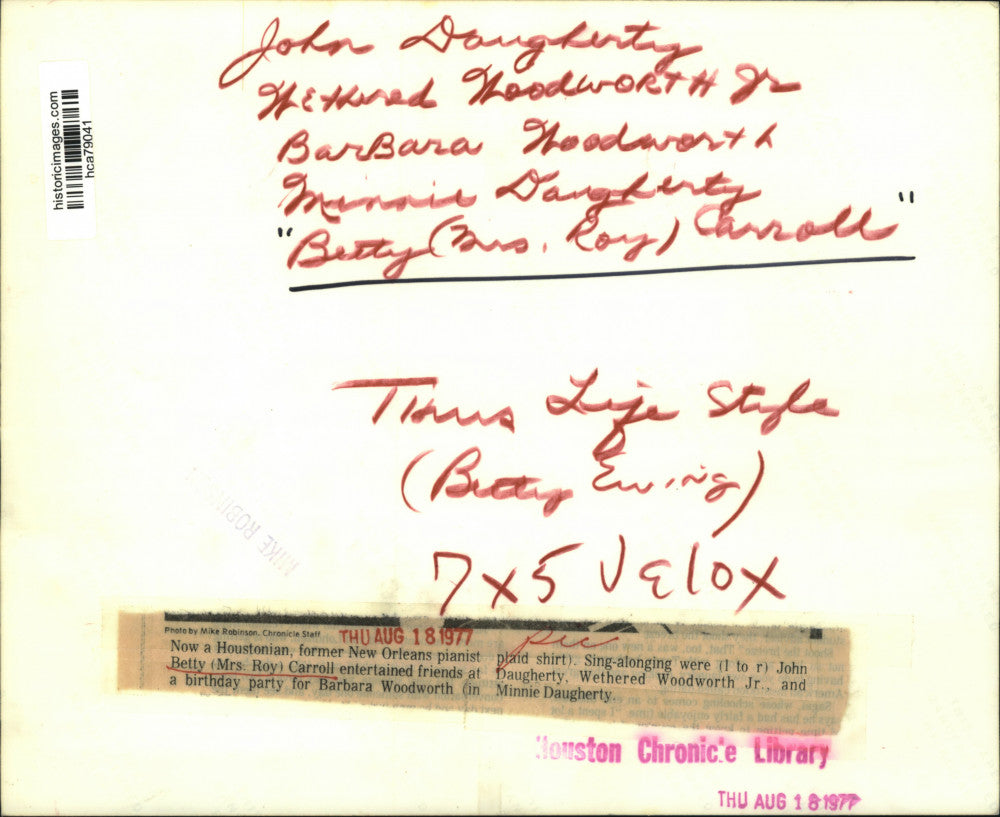 John Daugherty
Wethered WoodWORTH Jr
BarBara Woodworth
Minnie Daugherty
"Betty (Mrs. Roy) Carroll"
historicimages.com
hca79041
Thurs Life Style
(Betty Ewing)
7x5 Velox
MIKE ROBINSON
Photo by Mike Robinson, Chronicle Staff
THU AUG 18 1977
pic
Now a Houstonian, former New Orleans pianist
Betty (Mrs. Roy) Carroll entertained friends at
a birthday party for Barbara Woodworth (in
plaid shirt). Sing-alonging were (l to r) John
Daugherty, Wethered Woodworth Jr., and
Minnie Daugherty.
Houston Chronicle Library
THU AUG 18 1977